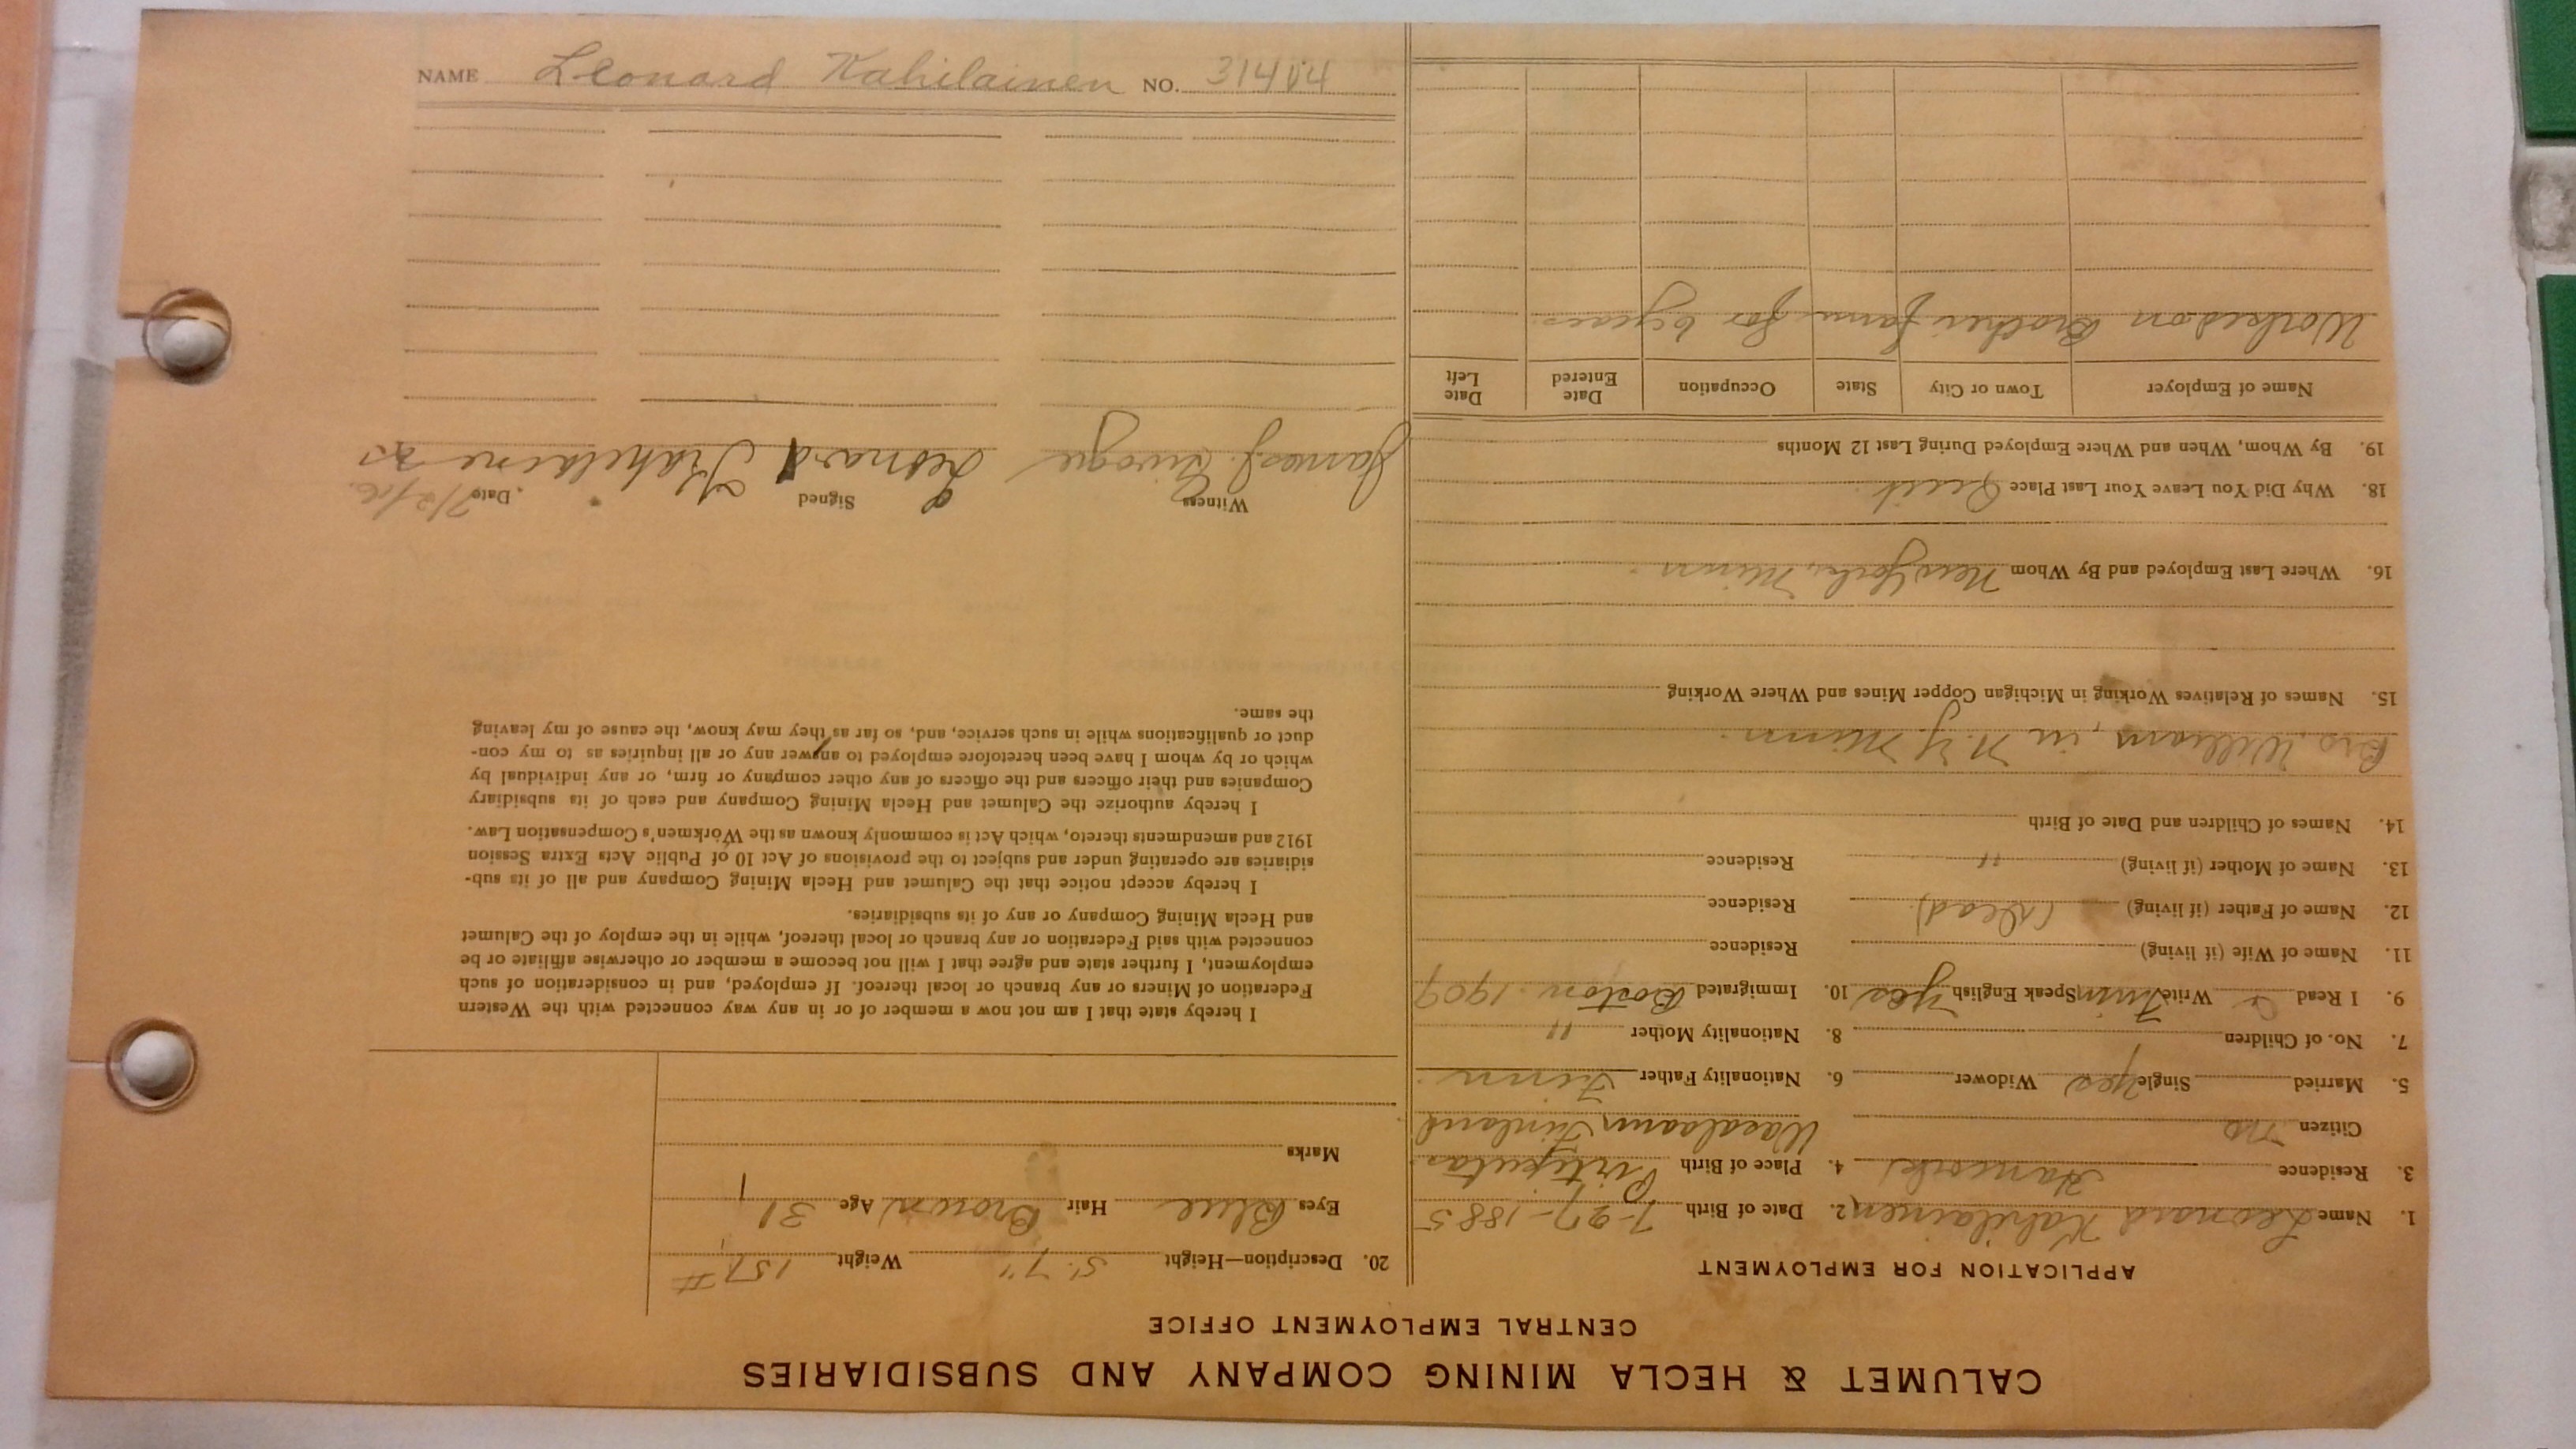 CALUMET & HECLA MINING COMPANY AND SUBSIDIARIES
CENTRAL EMPLOYMENT OFFICE
APPLICATION FOR EMPLOYMENT
1. Name Leonard Kahilainen 2. Date of Birth 7-27-1885
3. Residence Hancock 4. Place of Birth
Citizen no Finland
5. Married Single yes Widower 6. Nationality Father Finn
7. No. of Children 8. Nationality Mother "
9. I Read & Write Finn Speak English yes 10. Immigrated Boston 1909
11. Name of Wife (if living) Residence
12. Name of Father (if living) (Dead) Residence
13. Name of Mother (if living) " Residence
14. Names of Children and Date of Birth
Bro. William, in N.Y. Minn.
15. Names of Relatives Working in Michigan Copper Mines and Where Working
16. Where Last Employed and By Whom New York, Minn.
18. Why Did You Leave Your Last Place Quit.
19. By Whom, When and Where Employed During Last 12 Months
Name of Employer Town or City State Occupation Date Entered Date Left
Worked on Brother farm for 6 years.
20. Description—Height 5' 7" Weight 157 #
Eyes Blue Hair Brown Age 31
Marks
I hereby state that I am not now a member of or in any way connected with the Western
Federation of Miners or any branch or local thereof. If employed, and in consideration of such
employment, I further state and agree that I will not become a member or otherwise affiliate or be
connected with said Federation or any branch or local thereof, while in the employ of the Calumet
and Hecla Mining Company or any of its subsidiaries.
I hereby accept notice that the Calumet and Hecla Mining Company and all of its sub-
sidiaries are operating under and subject to the provisions of Act 10 of Public Acts Extra Session
1912 and amendments thereto, which Act is commonly known as the Workmen's Compensation Law.
I hereby authorize the Calumet and Hecla Mining Company and each of its subsidiary
Companies and their officers and the officers of any other company or firm, or any individual by
which or by whom I have been heretofore employed to answer any or all inquiries as to my con-
duct or qualifications while in such service, and, so far as they may know, the cause of my leaving
the same.
Witness Signed Date
James J. Leonard
NAME Leonard Kahilainen NO. 31404